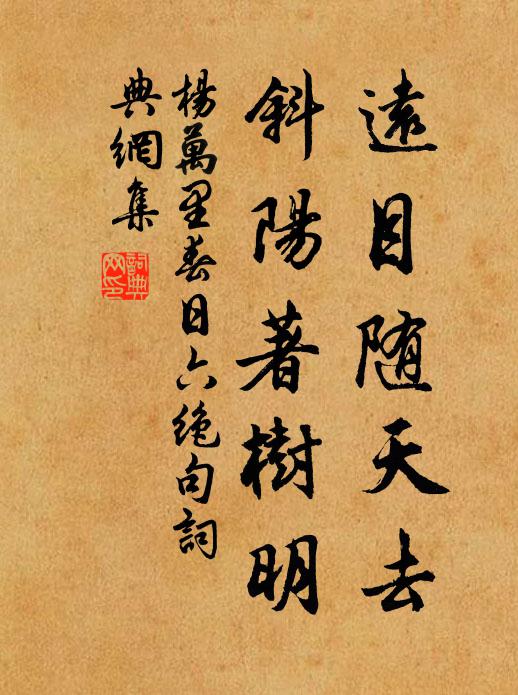 遠目随天去
斜陽著樹明
楊萬里春日六絶句詞
典網集
詞典
网印